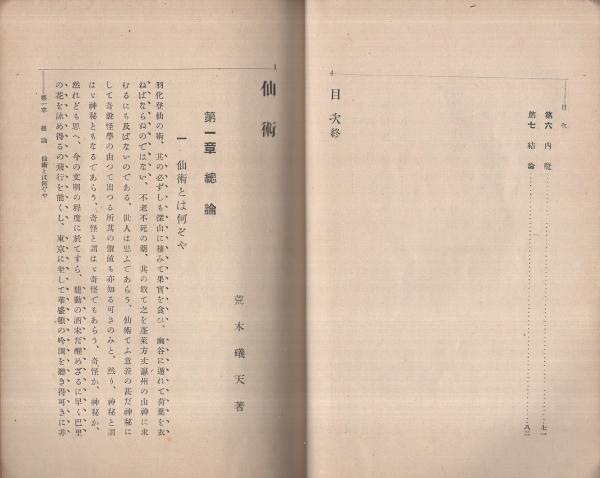 目次
第六 內觀……七一
第七 結論……八二
目次終
4
1
仙術
荒木礒天著
第一章 總論
一 仙術とは何ぞや
羽化登仙の術、其の必ずしも深山に棲みて果實を食ひ、幽谷に遁れて荷葉を衣
ねばならぬのではない、不老不死の藥、其の敢て之を蓬萊方丈瀛州の山神に求
むるにも及ばないのである、世人は思ふであらう、仙術てふ意義の甚だ神秘に
して奇說怪學の由つて出づる所其の價値も亦知る可きのみと、然り、神秘と謂
はゞ神秘ともなるであらう、奇怪と謂はゞ奇怪でもあらう、奇怪か、神秘か、
然れども思へ、今の文明の程度に於てすら、龍動の酒未だ醒めざるに早く巴里
の花を詠め得るの飛行を能くし、東京に坐して華盛頓の吟調を聽き得可きに非
第一章 總論 仙術とは何ぞや